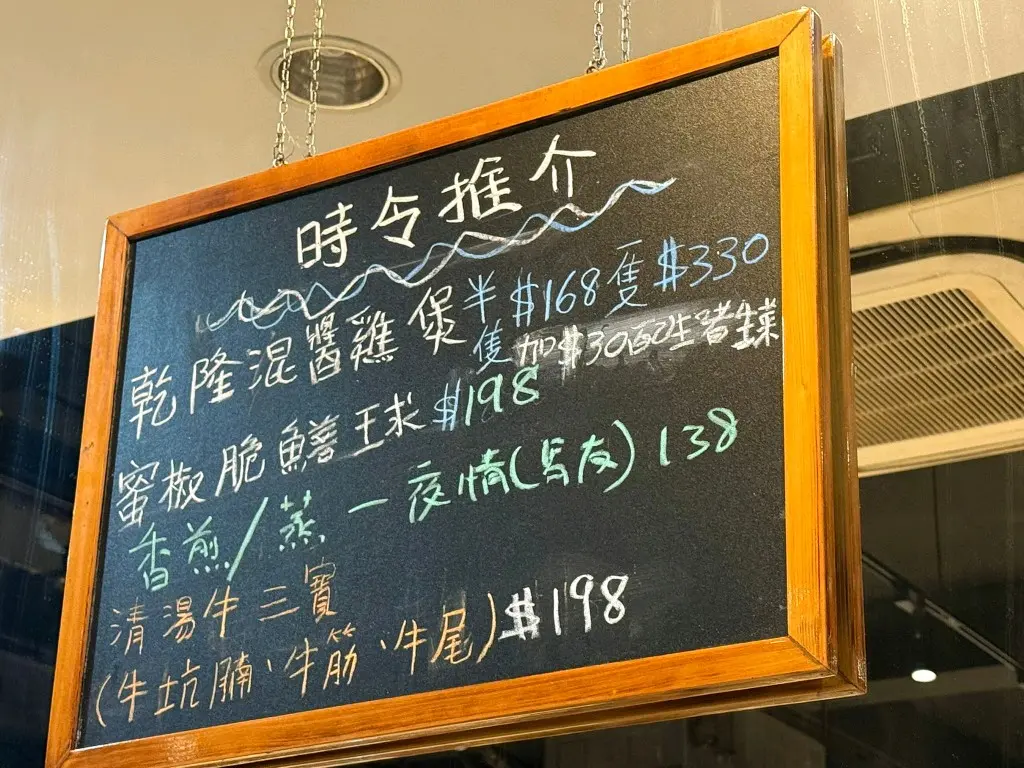 時令推介
乾隆混醬雞煲 半隻 $168 隻 $330
加$30配生菜
蜜椒脆鱔球 $198
香煎/蒸 一夜情(馬友) 138
清湯牛三寶
(牛坑腩、牛筋、牛尾) $198